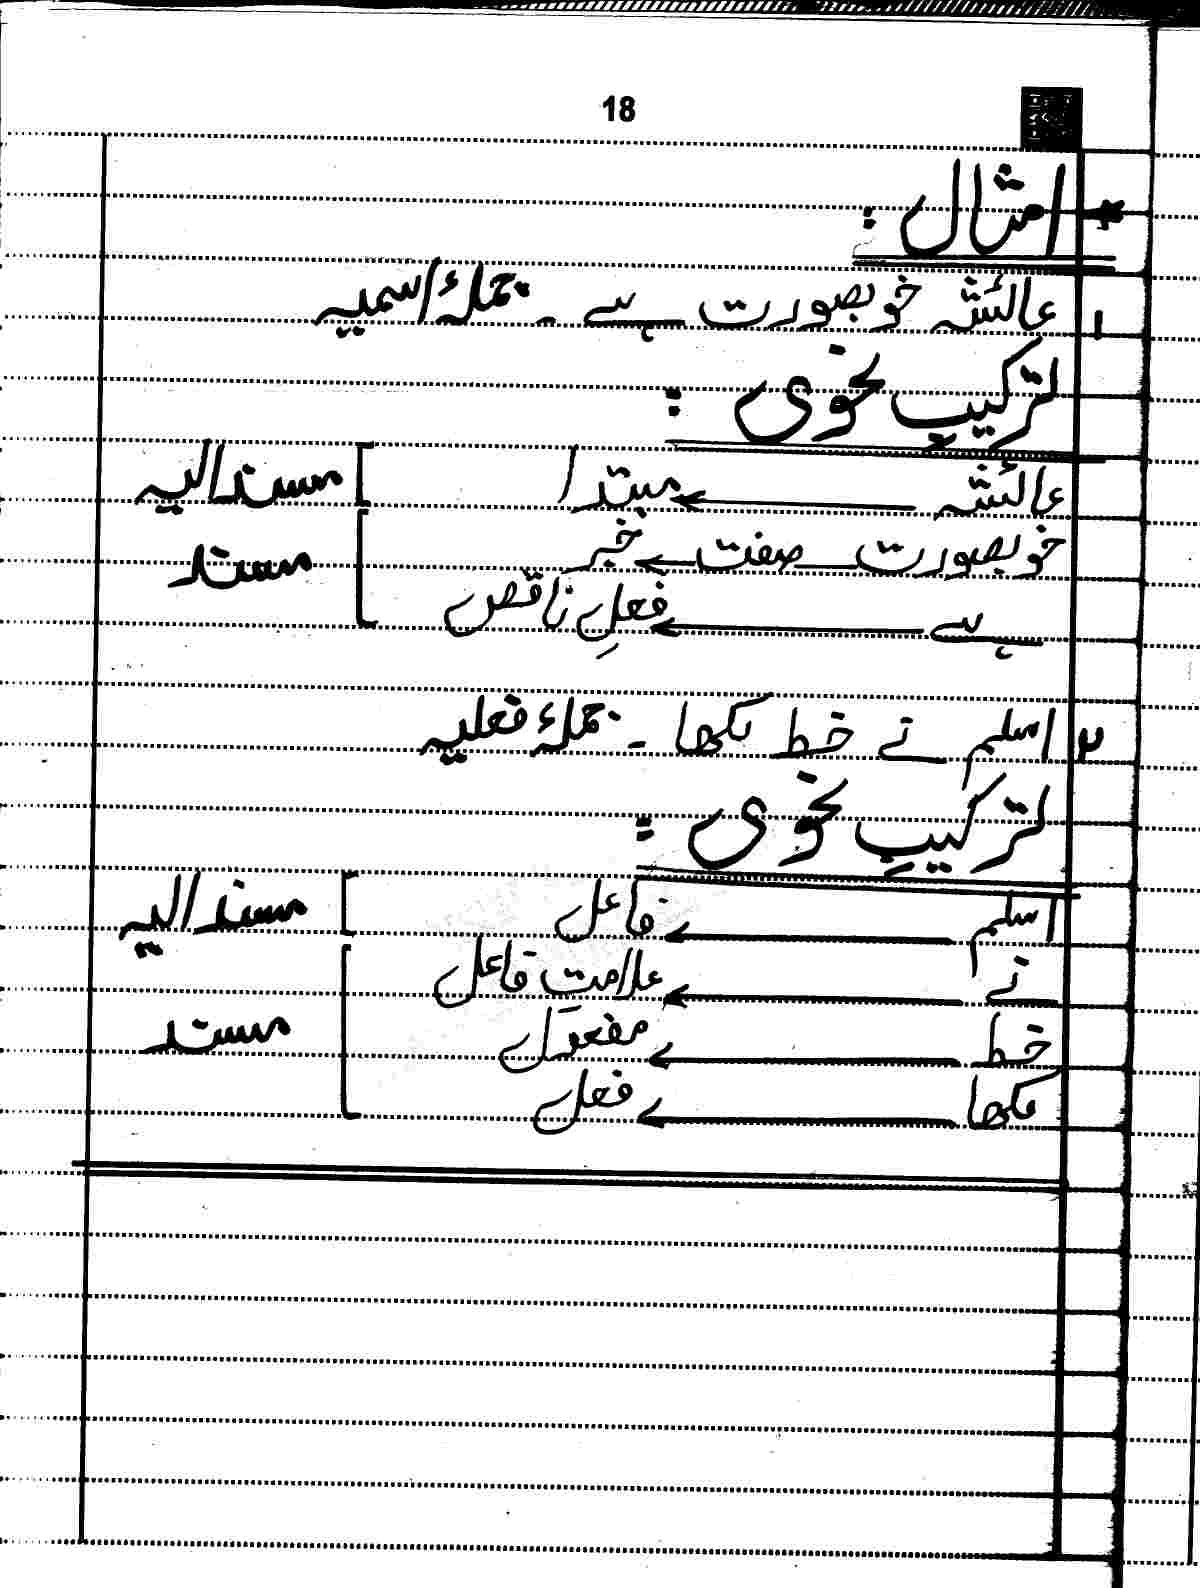 18
* امثال :
۱ عائشہ خوبصورت ہے ۔ جملۂ اسمیہ
ترکیبِ نحوی :
عائشہ ← مبتدا [ مسند الیہ
خوبصورت صفت ← خبر [ مسند
ہے ← فعلِ ناقص
۲ اسلم نے خط لکھا ۔ جملۂ فعلیہ
ترکیبِ نحوی :
اسلم ← فاعل [ مسند الیہ
نے ← علامت فاعل
خط ← مفعول [ مسند
لکھا ← فعل